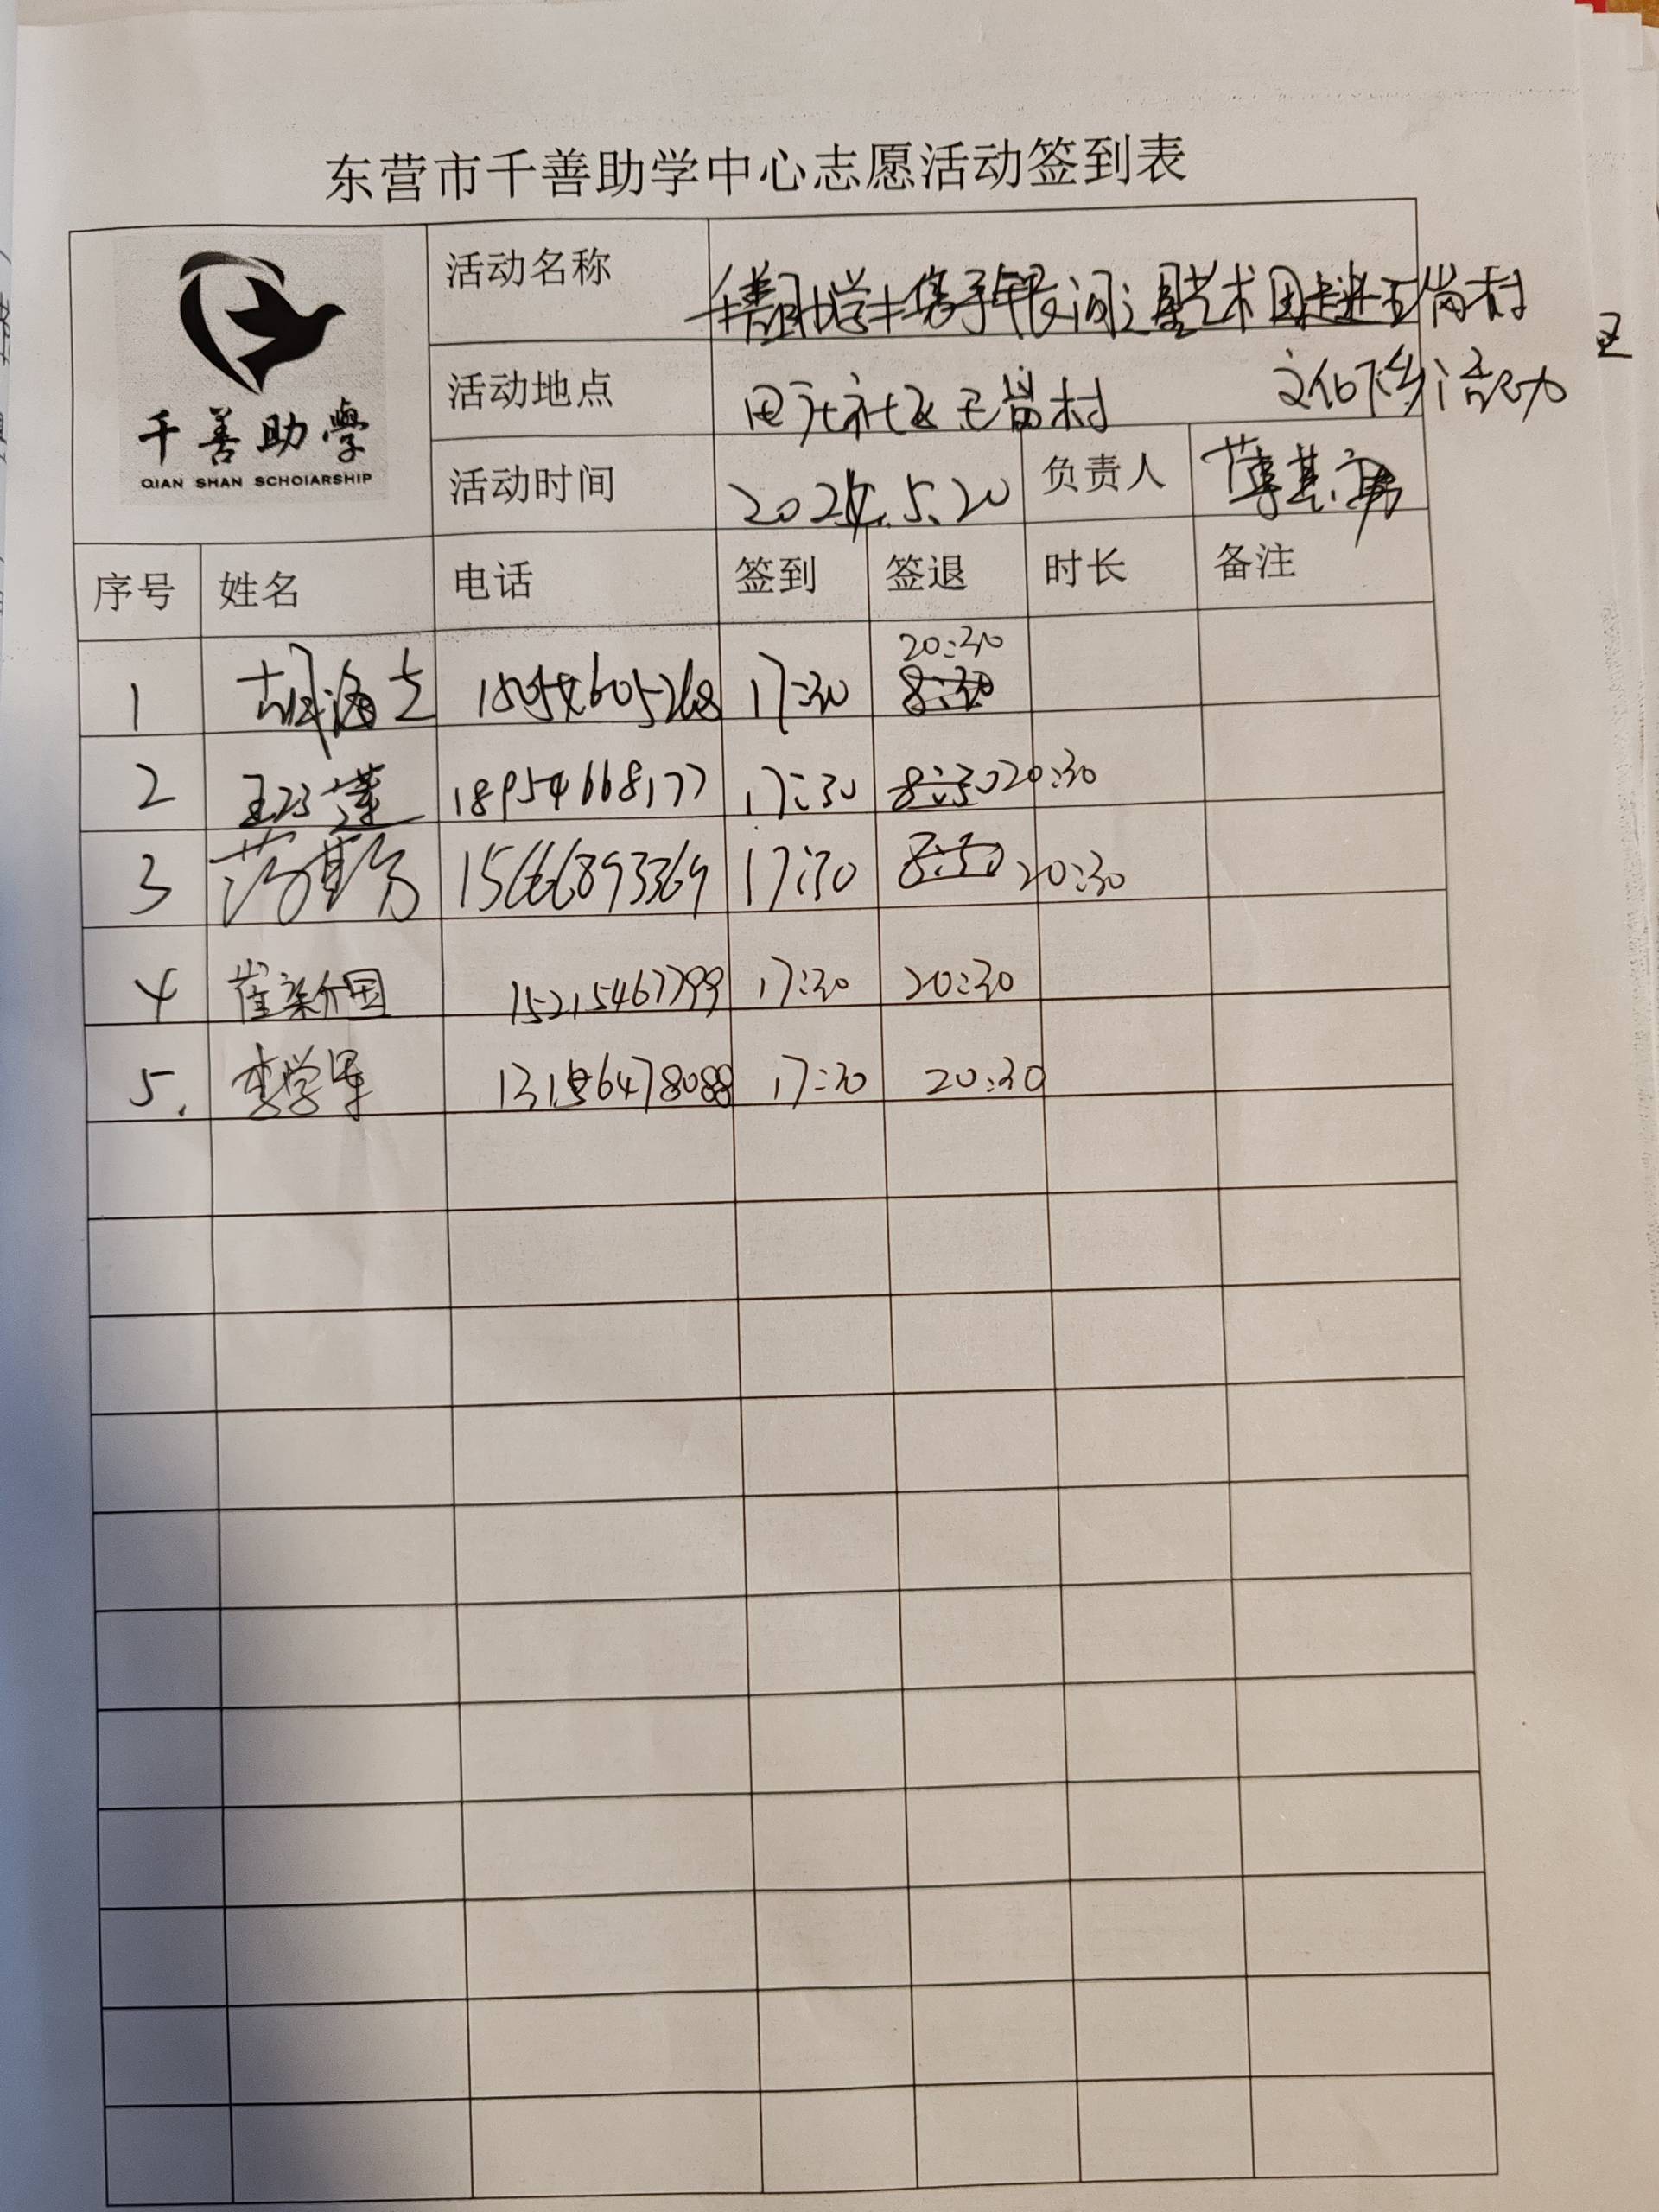 东营市千善助学中心志愿活动签到表
千善助學
QIAN SHAN SCHOlARSHIP
活动名称 千善助学携手夕阳之星艺术团走进王岗村
文化下乡活动
活动地点 社区王岗村
活动时间 2024.5.20 负责人 薄其
序号 姓名 电话 签到 签退 时长 备注
20:30
1 胡海 17:30 8:30
2 王 莲 18954668177 17:30 8:30 20:30
3 15666893369 17:30 8:30 20:30
4 崔新国 15215467799 17:30 20:30
5. 李学军 17:30 20:30